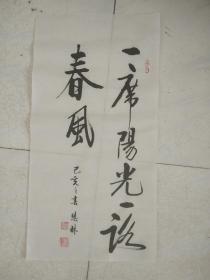 一席陽光一路
春風
己亥之春